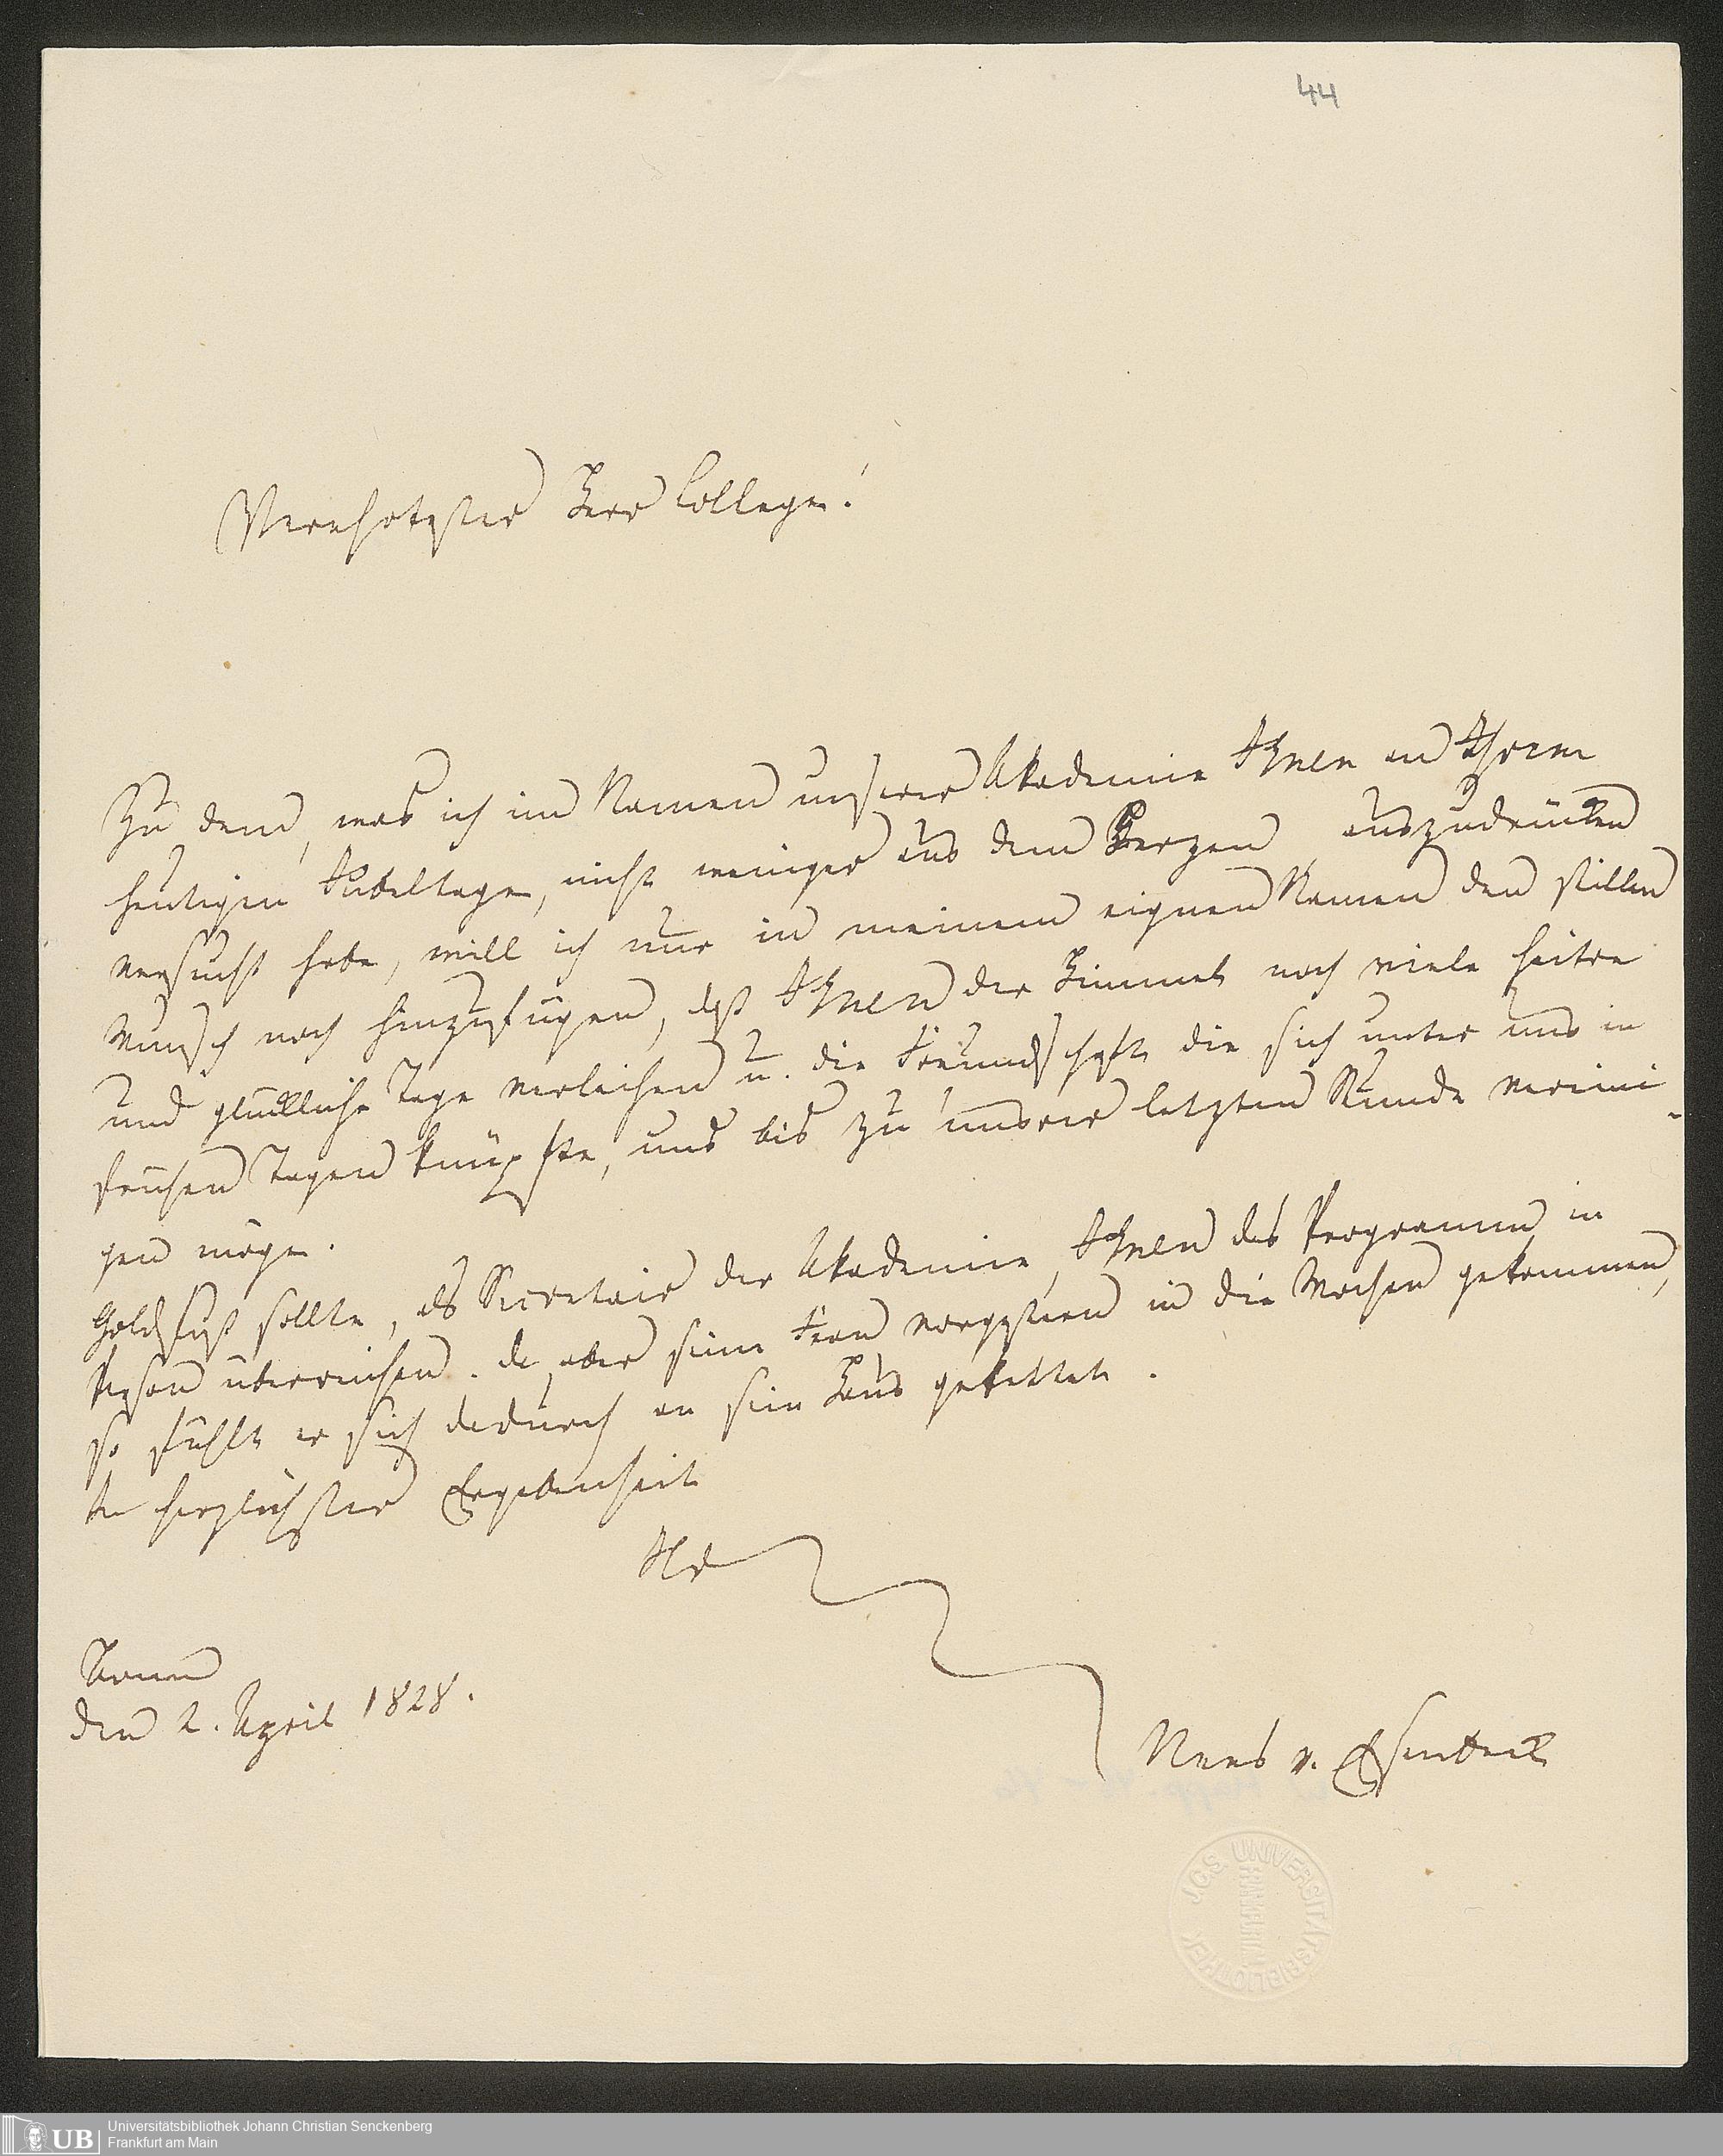 44
Verehrtester Herr College!
Zu dem, was ich im Namen unserer Akademie Ihnen an Ihrem
heutigen Jubeltage, nicht weniger aus dem Herzen auszudrücken
versucht habe, will ich nur in meinem eignen Namen den stillen
Wunsch noch hinzufügen, daß Ihnen der Himmel noch viele heitre
und glückliche Tage verleihen u. die Freundschaft die sich unter uns in
frühen Tagen knüpfte, uns bis zu unsrer letzten Stunde verini-
gen möge.
Goldfuß sollte, als Secretair der Akademie, Ihnen das Programm in
Person überreichen. da aber seine Frau vorgestern in die Wochen gekommen,
so fühlt er sich dadurch an sein Haus gekettet.
In herzlichster Ergebenheit
Ihr
Bonn
den 2. April 1828.
Nees v. Esenbeck
J.C.S. UNIVERSITÄTSBIBLIOTHEK
FRANKFURT/MAIN
UB
Universitätsbibliothek Johann Christian Senckenberg
Frankfurt am Main